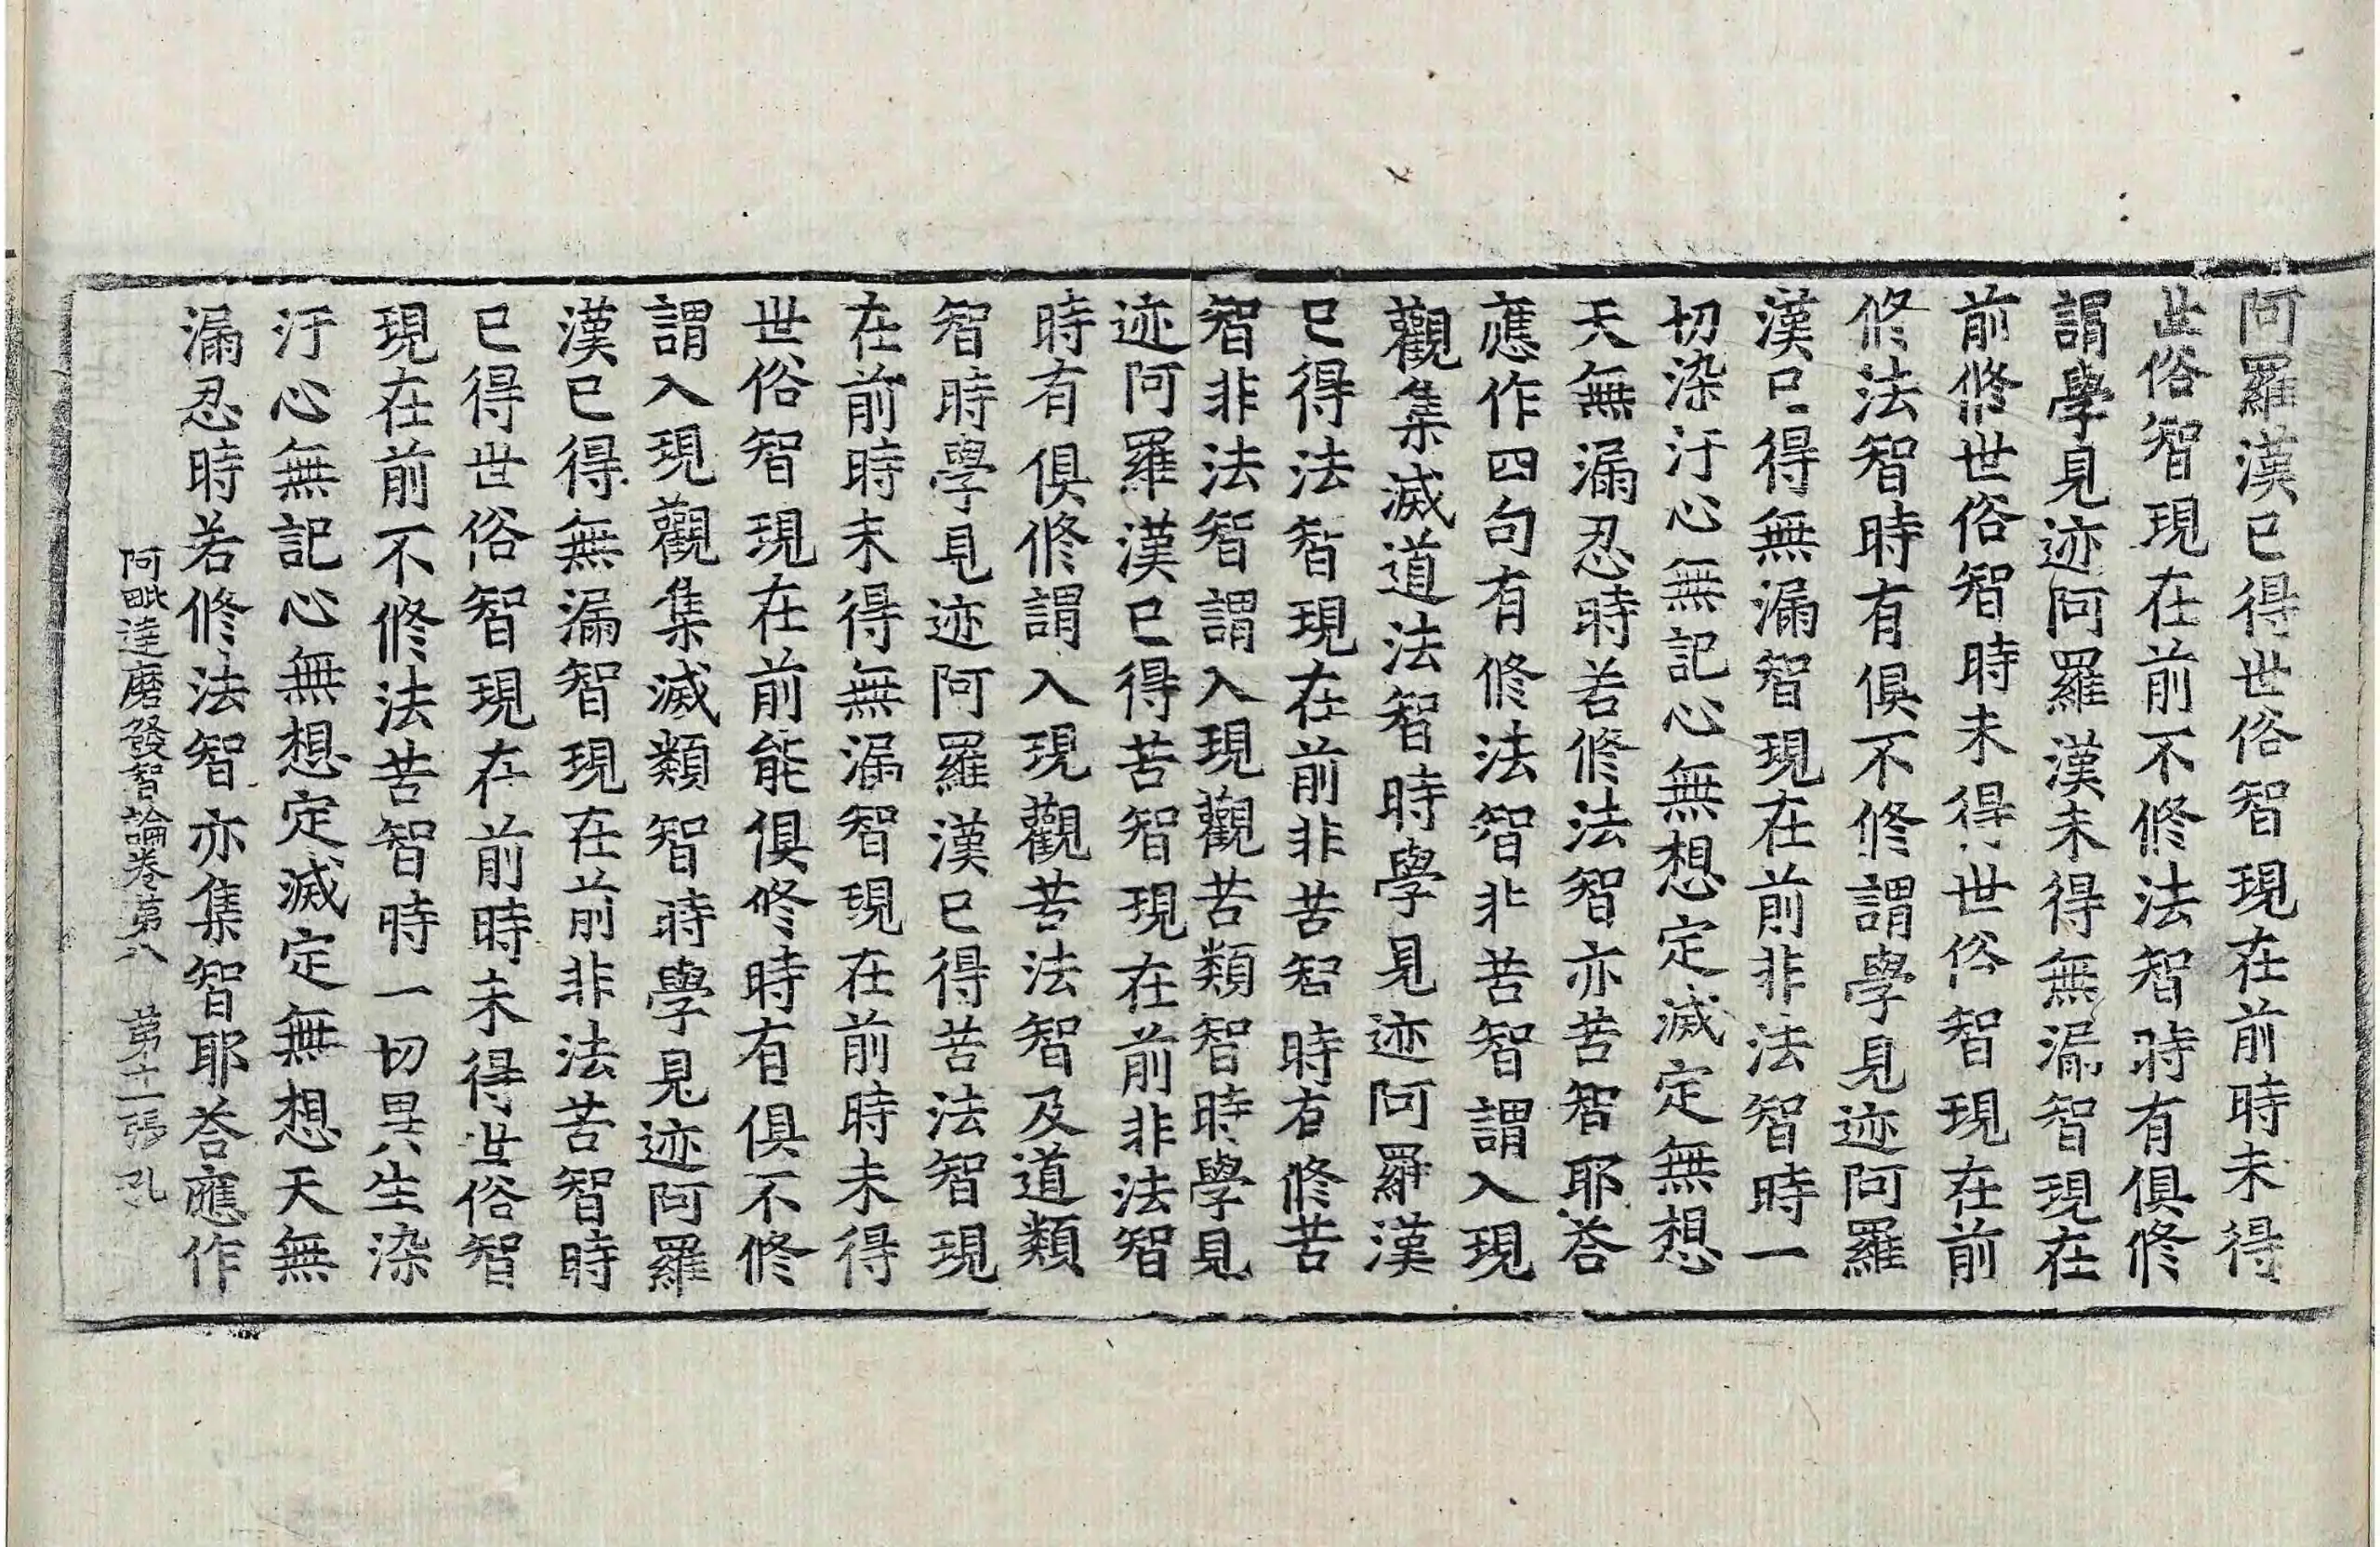 阿羅漢已得世俗智現在前時未得
世俗智現在前不修法智時有俱修
謂學見迹阿羅漢未得無漏智現在
前修世俗智時未得世俗智現在前
修法智時有俱不修謂學見迹阿羅
漢已得無漏智現在前非法智時一
切染汙心無記心無想定滅定無想
天無漏忍時若修法智亦苦智耶荅
應作四句有修法智非苦智謂入現
觀集滅道法智時學見迹阿羅漢
已得法智現在前非苦智時有修苦
智非法智謂入現觀苦類智時學見
迹阿羅漢已得苦智現在前非法智
時有俱修謂入現觀苦法智及道類
智時學見迹阿羅漢已得苦法智現
在前時未得無漏智現在前時未得
世俗智現在前能俱修時有俱不修
謂入現觀集滅類智時學見迹阿羅
漢已得無漏智現在前非法苦智時
已得世俗智現在前時未得世俗智
現在前不修法苦智時一切異生染
汙心無記心無想定滅定無想天無
漏忍時若修法智亦集智耶荅應作
阿毗達磨發智論卷第八 第十二張 孔